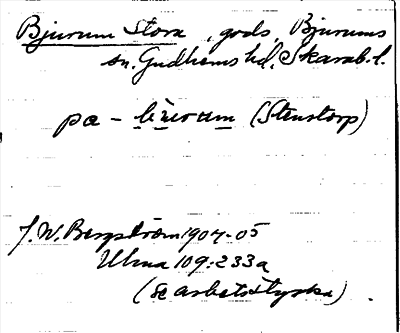 Bjurum Stora, gods, Bjurums
sn. Gudhems hd, Skarab. l.
pa - (Stenstorp)
J. W. Bergström 1904-05
Ulma 109:233a
(se arbetstyska)